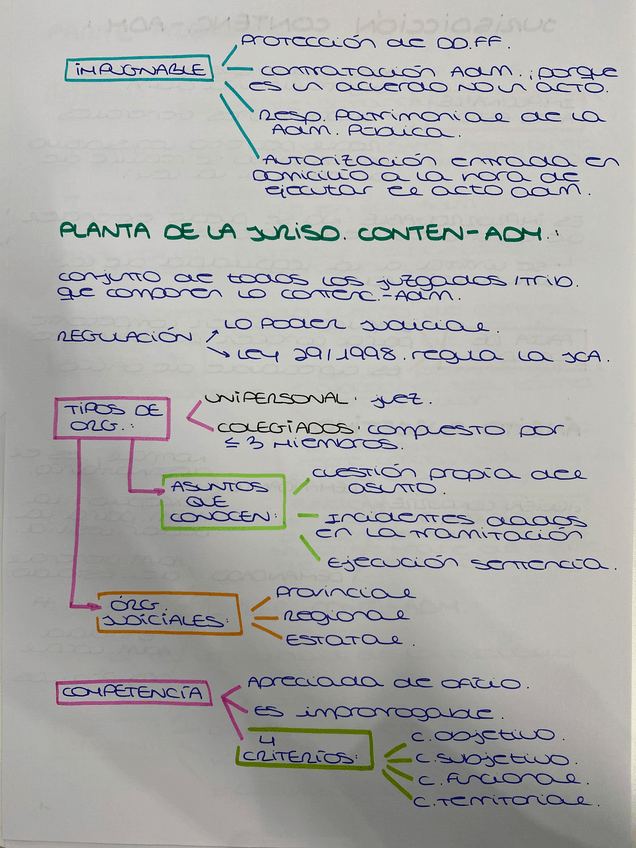 IMPUGNABLE
PROTECCIÓN de DD.FF.
CONTRATACIÓN ADM., porque
es un acuerdo no un acto.
Resp. Patrimonial de la
Adm. Pública.
Autorización entrada en
Domicilio a la hora de
ejecutar el acto adm.
PLANTA DE LA JURISD. CONTEN-ADM.:
Conjunto de todos los juzgados/trib.
que componen lo contenc.-Adm.
REGULACIÓN
LO PODER JUDICIAL.
LEY 29/1998. regula la JCA.
TIPOS DE
ORG.:
UNIPERSONAL: juez.
COLEGIADOS: compuesto por
≤ 3 miembros.
ASUNTOS
QUE
CONOCEN:
Cuestión propia del
asunto.
Incidentes dados
en la tramitación
Ejecución sentencia.
ÓRG.
JUDICIALES:
Provincial
Regional
ESTATAL.
COMPETENCIA
Apreciada de oficio.
Es improrrogable.
4
CRITERIOS:
C. objetivo.
C. subjetivo.
C. Funcional.
C. Territorial.